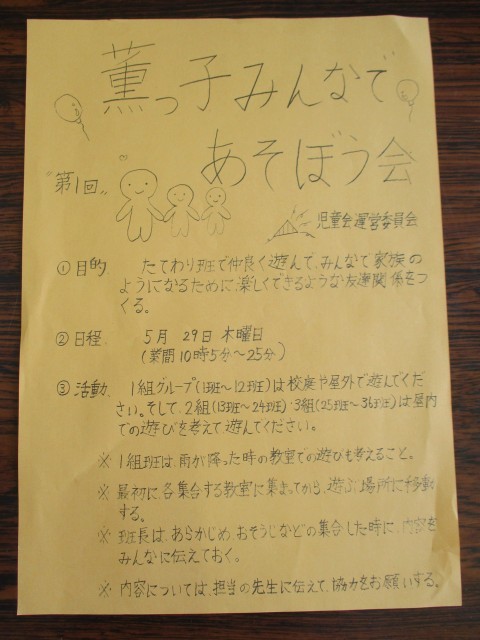 薫っ子みんなで
あそぼう会
"第1回"
児童会運営委員会
①目的 たてわり班で仲良く遊んで、みんなで家族の
ようになるために、楽しくできるような友達関係をつ
くる。
②日程 5月 29日 木曜日
(業間10時5分～25分)
③活動 1組グループ(1班～12班)は校庭や屋外で遊んでくだ
さい。そして、2組(13班～24班)・3組(25班～36班)は屋内
での遊びを考えて遊んでください。
※ 1組班は、雨が降った時の教室での遊びも考えること。
※ 最初に、各集合する教室に集まってから、遊ぶ場所に移動
する。
※ 班長は、あらかじめ、おそうじなどの集合した時に、内容を
みんなに伝えておく。
※ 内容については、担当の先生に伝えて、協力をお願いする。